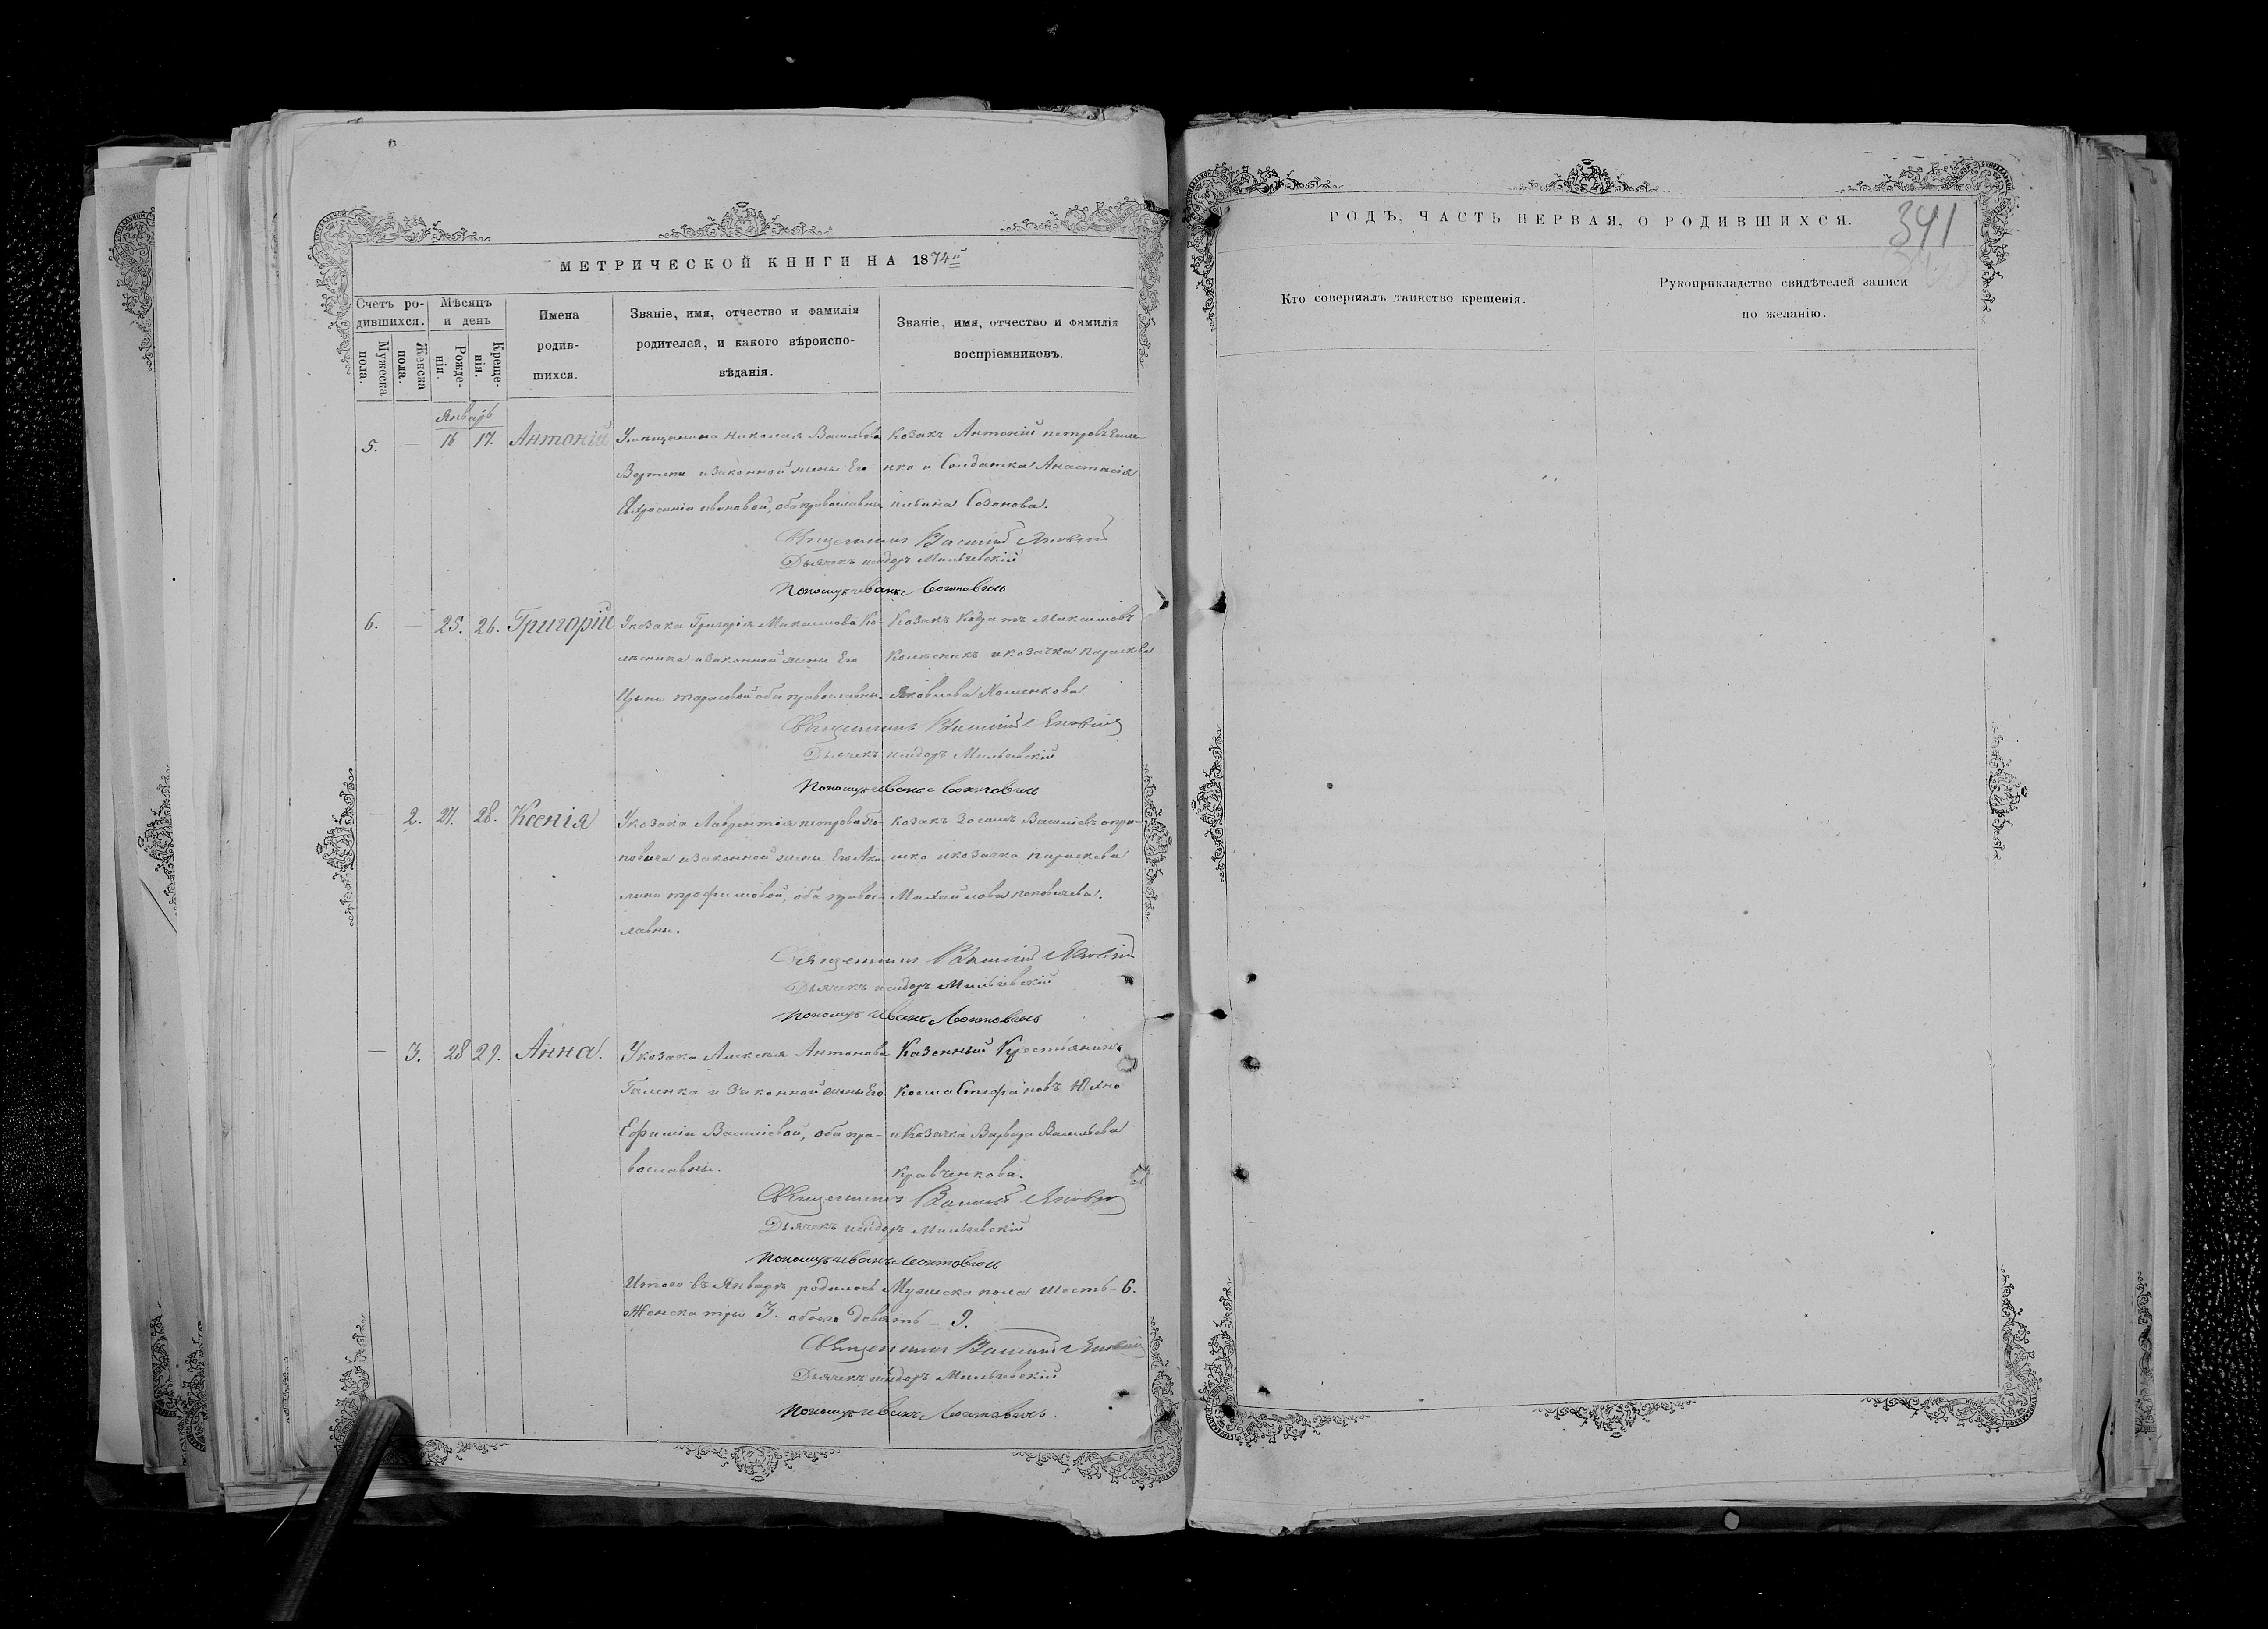 МЕТРИЧЕСКОЙ КНИГИ НА 1874й
Счетъ ро-
дившихся.
Мужеска пола.
Женска пола.
Мѣсяцъ
и день
Рожде-
нія.
Креще-
нія.
Имена
родив-
шихся.
Званіе, имя, отчество и фамилія
родителей, и какого вѣроиспо-
вѣданія.
Званіе, имя, отчество и фамилія
воспріемниковъ.
Январь
5. — 16 17. Антоній
У мѣщанина Николая Васильева
и законной жены Его
Евфросиніи Ивановой, оба православны
Козакъ Антоній Петровъ
нко и Солдатка Анастасія
Созонова.
Священникъ Василій
Дьячекъ Исидоръ Мильчевскій
Пономарь Иванъ Леонтовичъ
6. — 25. 26. Григорій
У козака Григорія Максимова Ко-
лѣсника и законной жены Его
Ирины Тарасовой оба православны.
Козакъ Кодратъ Максимовъ
Колѣсникъ и козачка Параскева
Яковлева Хоменкова.
Священникъ Василій
Дьячекъ Исидоръ Мильчевскій
Пономарь Иванъ Леонтовичъ
— 2. 27. 28. Ксенія
У козака Лаврентія Петрова По-
повича и законной жены Его Аку
лины Трофимовой, оба правос-
лавны.
Козакъ Василіевъ
и козачка Параскева
Михайлова Поповичева.
Священникъ Василій
Дьячекъ Исидоръ Мильчевскій
Пономарь Иванъ Леонтовичъ
— 3. 28 29. Анна.
У козака Алексѣя Антонова
Галенка и Законной жены Его
Ефиміи Василіевой, оба пра-
вославны.
Казенный Крестьянинъ
Косма Стефановъ
и Козачка Варвара Васильева
Кравченкова.
Священникъ Василій
Дьячекъ Исидоръ Мильчевскій
Пономарь Иванъ Леонтовичъ
Итого въ Январѣ родилось Мужеска пола шесть - 6.
Женска три 3. обоего девять - 9.
Священникъ Василій
Дьячекъ Исидоръ Мильчевскій
Пономарь Иванъ Леонтовичъ.
ГОДЪ, ЧАСТЬ ПЕРВАЯ, О РОДИВШИХСЯ.
341
Кто совершалъ таинство крещенія.
Рукоприкладство свидѣтелей записи
по желанію.